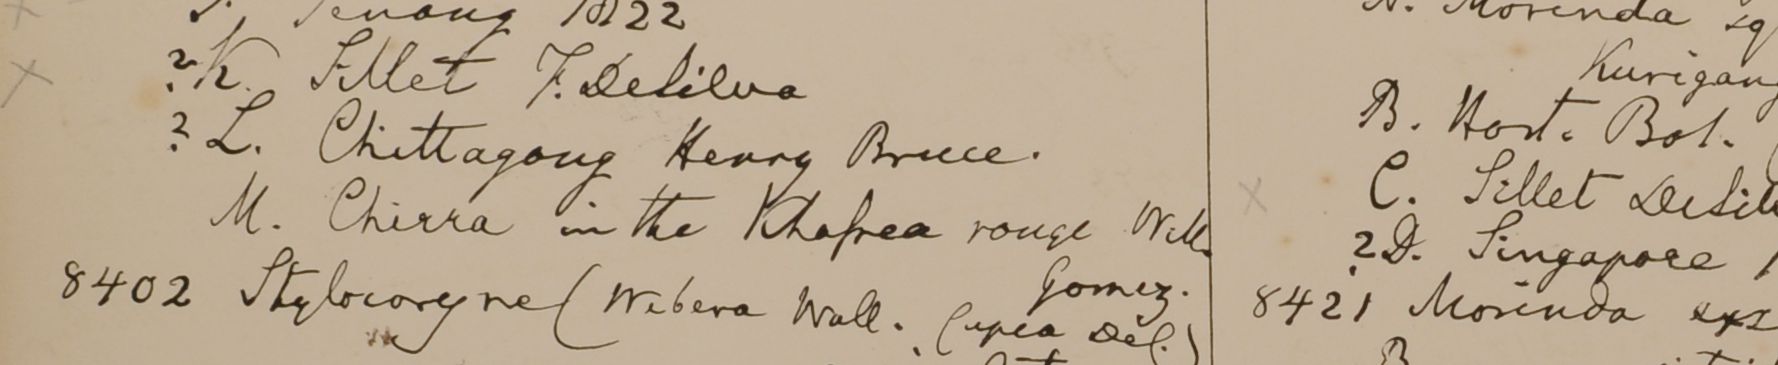 Penang 1822
?K. Sillet F. DeSilva
? L. Chittagong Henry Bruce.
M. Chirra in the Khasea range Wall.
Gomez.
8402 Stylocoryne (Webera Wall. Cupea Del.)
N. Morinda sq
Kurigang
B. Hort. Bot.
C. Sillet DeSil
?D. Singapore
8421 Morinda
B